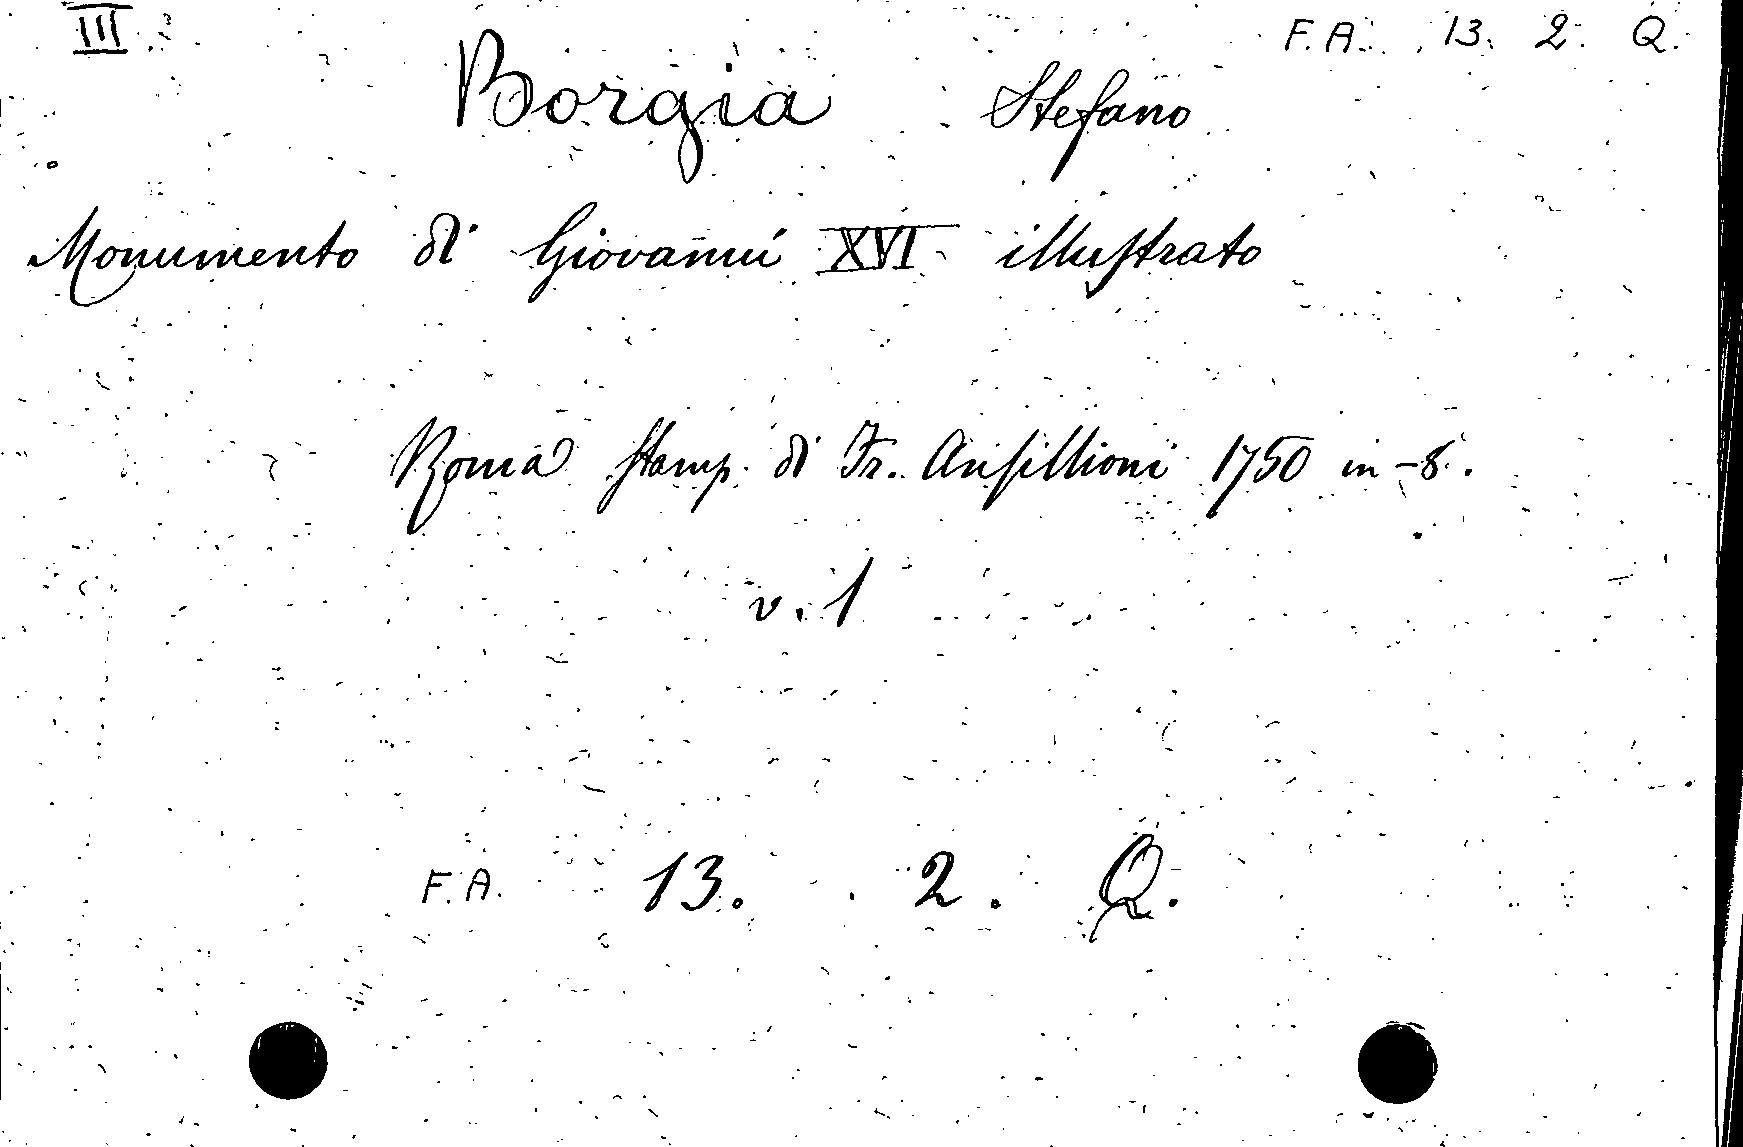 III F. A. 13. 2. Q.
Borgia Stefano
Monumento di Giovanni XVI illustrato
Roma stamp. di Fr. Ansillioni 1750 in-8.
v. 1
F. A. 13. 2. Q.